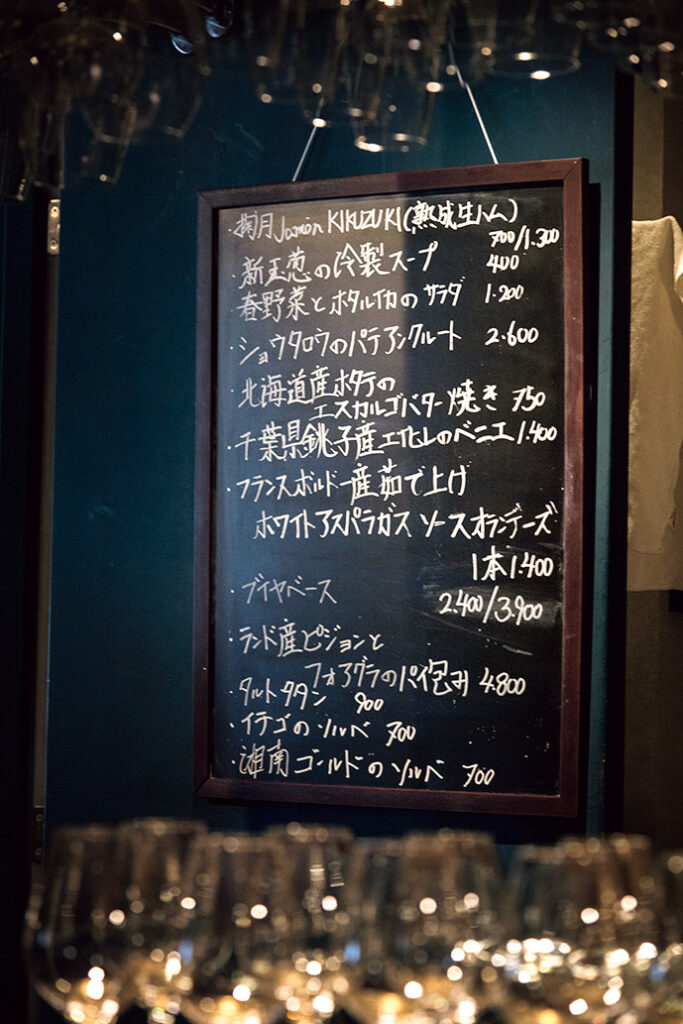 掬月 Jamón KIKUZUKI (熟成生ハム)
700/1.300
・新玉葱の冷製スープ 400
春野菜とホタルイカのサラダ 1.200
・ショウタロウのパテアンクルート 2.600
・北海道産ホタテの
エスカルゴバター焼き 750
・千葉県銚子産エイヒレのベニエ 1.400
・フランスボルドー産茹で上げ
ホワイトアスパラガス ソースオランデーズ
1本 1.400
・ブイヤベース 2.400/3.900
・ランド産ピジョンと
フォアグラのパイ包み 4.800
・タルトタタン 900
・イチゴのソルベ 700
・湘南ゴールドのソルベ 700